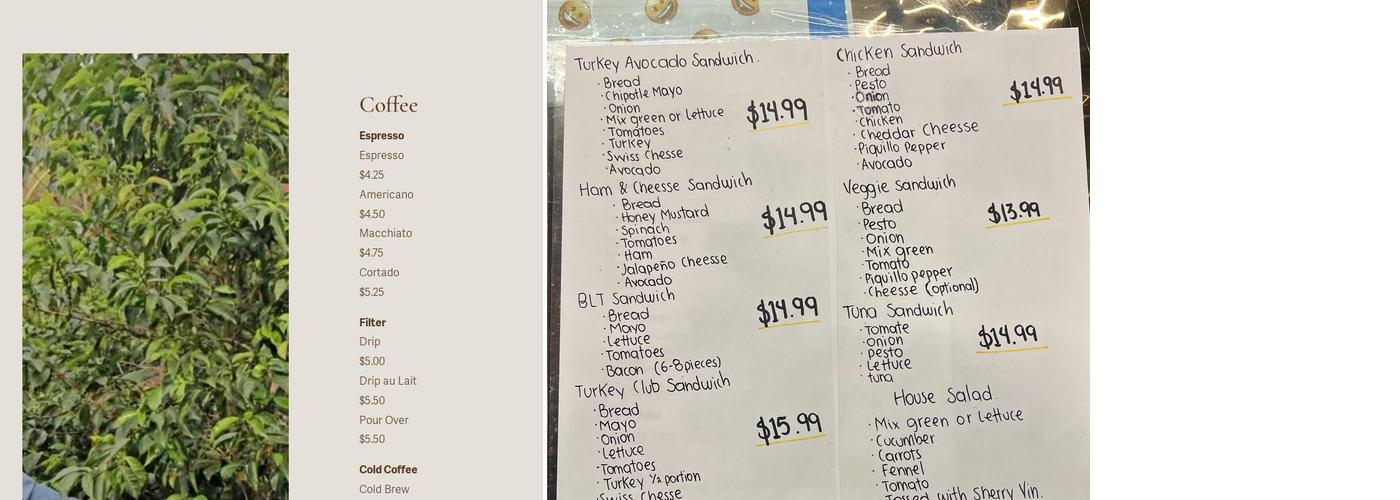 Coffee
Espresso
Espresso
$4.25
Americano
$4.50
Macchiato
$4.75
Cortado
$5.25
Filter
Drip
$5.00
Drip au Lait
$5.50
Pour Over
$5.50
Cold Coffee
Cold Brew
Turkey Avocado Sandwich.
· Bread
· Chipotle Mayo
· Onion
· Mix green or Lettuce
· Tomatoes
· Turkey
· Swiss Chesse
· Avocado
$14.99
Ham & Cheesse Sandwich
· Bread
· Honey Mustard
· Spinach
· Tomatoes
· Ham
· Jalapeño Cheesse
· Avocado
$14.99
BLT Sandwich
· Bread
· Mayo
· Lettuce
· Tomatoes
· Bacon (6-8 pieces)
$14.99
Turkey Club Sandwich
· Bread
· Mayo
· Onion
· Lettuce
· Tomatoes
· Turkey 1/2 portion
· Swiss Chesse
$15.99
Chicken Sandwich
· Bread
· Pesto
· Onion
· Tomato
· Chicken
· Cheddar Cheesse
· Piquillo Pepper
· Avocado
$14.99
Veggie Sandwich
· Bread
· Pesto
· Onion
· Mix green
· Tomato
· Piquillo pepper
· Cheesse (optional)
$13.99
Tuna Sandwich
· Tomate
· onion
· pesto
· Lettuce
· tuna
$14.99
House Salad.
· Mix green or Lettuce
· Cucumber
· Carrots
· Fennel
· Tomato
Tossed with Sherry Vin.